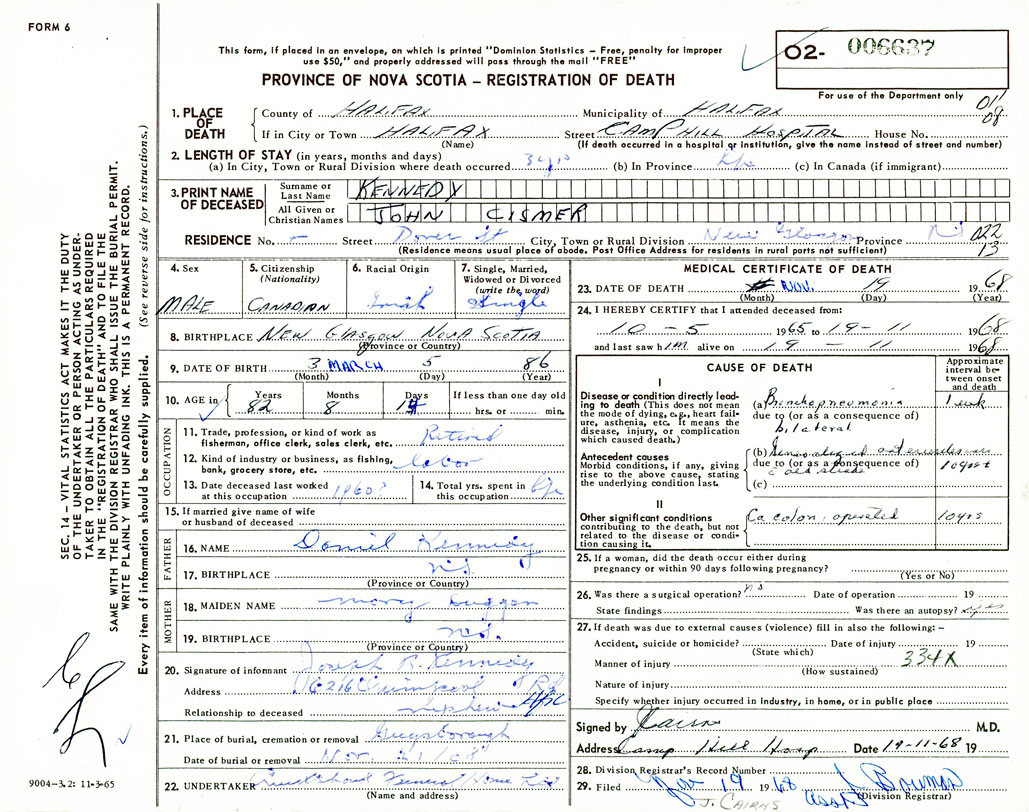 FORM 6
This form, if placed in an envelope, on which is printed "Dominion Statistics – Free, penalty for improper
use $50," and properly addressed will pass through the mail "FREE"
PROVINCE OF NOVA SCOTIA – REGISTRATION OF DEATH
O2- 006637
For use of the Department only
011
08
1. PLACE OF DEATH
County of HALIFAX Municipality of HALIFAX
If in City or Town HALIFAX Street CAMP HILL HOSPITAL House No.
(Name) (If death occurred in a hospital or institution, give the name instead of street and number)
2. LENGTH OF STAY (in years, months and days)
(a) In City, Town or Rural Division where death occurred (b) In Province life (c) In Canada (if immigrant)
3. PRINT NAME OF DECEASED
Surname or Last Name KENNEDY
All Given or Christian Names JOHN CISMER
RESIDENCE No. – Street Dover St City, Town or Rural Division New Glasgow Province NS
(Residence means usual place of abode. Post Office Address for residents in rural parts not sufficient)
022
13
4. Sex MALE
5. Citizenship (Nationality) CANADIAN
6. Racial Origin Irish
7. Single, Married, Widowed or Divorced (write the word) Single
8. BIRTHPLACE NEW GLASGOW NOVA SCOTIA
(Province or Country)
9. DATE OF BIRTH 3 MARCH 5 86
(Month) (Day) (Year)
10. AGE in Years Months Days If less than one day old
82 8 14 hrs. or min.
OCCUPATION
11. Trade, profession, or kind of work as fisherman, office clerk, sales clerk, etc. Retired
12. Kind of industry or business, as fishing, bank, grocery store, etc. labor
13. Date deceased last worked at this occupation 1960?
14. Total yrs. spent in this occupation life
15. If married give name of wife or husband of deceased
FATHER
16. NAME Daniel Kennedy
17. BIRTHPLACE N.S.
(Province or Country)
MOTHER
18. MAIDEN NAME Mary Duggan
19. BIRTHPLACE N.S.
(Province or Country)
20. Signature of informant Joseph R. Kennedy
Address 6216 Quinpool Rd Hfx
Relationship to deceased nephew
21. Place of burial, cremation or removal Guysborough
Date of burial or removal Nov. 21/68
22. UNDERTAKER Funeral Home Ltd
(Name and address)
MEDICAL CERTIFICATE OF DEATH
23. DATE OF DEATH NOV. 19 1968
(Month) (Day) (Year)
24. I HEREBY CERTIFY that I attended deceased from:
10 – 5 1965 to 19 – 11 1968
and last saw him alive on 19 – 11 1968
CAUSE OF DEATH
Approximate interval between onset and death
I
Disease or condition directly leading to death (This does not mean the mode of dying, e.g., heart failure, asthenia, etc. It means the disease, injury, or complication which caused death.)
(a) Bronchopneumonia 1 wk
due to (or as a consequence of)
bilateral
Antecedent causes
Morbid conditions, if any, giving rise to the above cause, stating the underlying condition last.
(b) Generalized
due to (or as a consequence of)
c old stroke 10yrs+
(c)
II
Other significant conditions contributing to the death, but not related to the disease or condition causing it.
Ca colon, operated 10yrs
25. If a woman, did the death occur either during pregnancy or within 90 days following pregnancy?
(Yes or No)
26. Was there a surgical operation? no Date of operation 19
State findings Was there an autopsy?
27. If death was due to external causes (violence) fill in also the following: –
Accident, suicide or homicide? Date of injury 19
(State which)
Manner of injury 334X
(How sustained)
Nature of injury
Specify whether injury occurred in industry, in home, or in public place
Signed by J Cairns M.D.
Address Camp Hill Hosp Date 19-11-68 19
28. Division Registrar's Record Number
29. Filed Nov 19 1968 J. Bowman
Asst
(Division Registrar)
J. CAIRNS
SEC. 14 – VITAL STATISTICS ACT MAKES IT THE DUTY
OF THE UNDERTAKER OR PERSON ACTING AS UNDER-
TAKER TO OBTAIN ALL THE PARTICULARS REQUIRED
IN THE "REGISTRATION OF DEATH" AND TO FILE THE
SAME WITH THE DIVISION REGISTRAR WHO SHALL ISSUE THE BURIAL PERMIT.
WRITE PLAINLY WITH UNFADING INK. THIS IS A PERMANENT RECORD.
Every item of information should be carefully supplied. (See reverse side for instructions.)
9004-3.2: 11-3-65